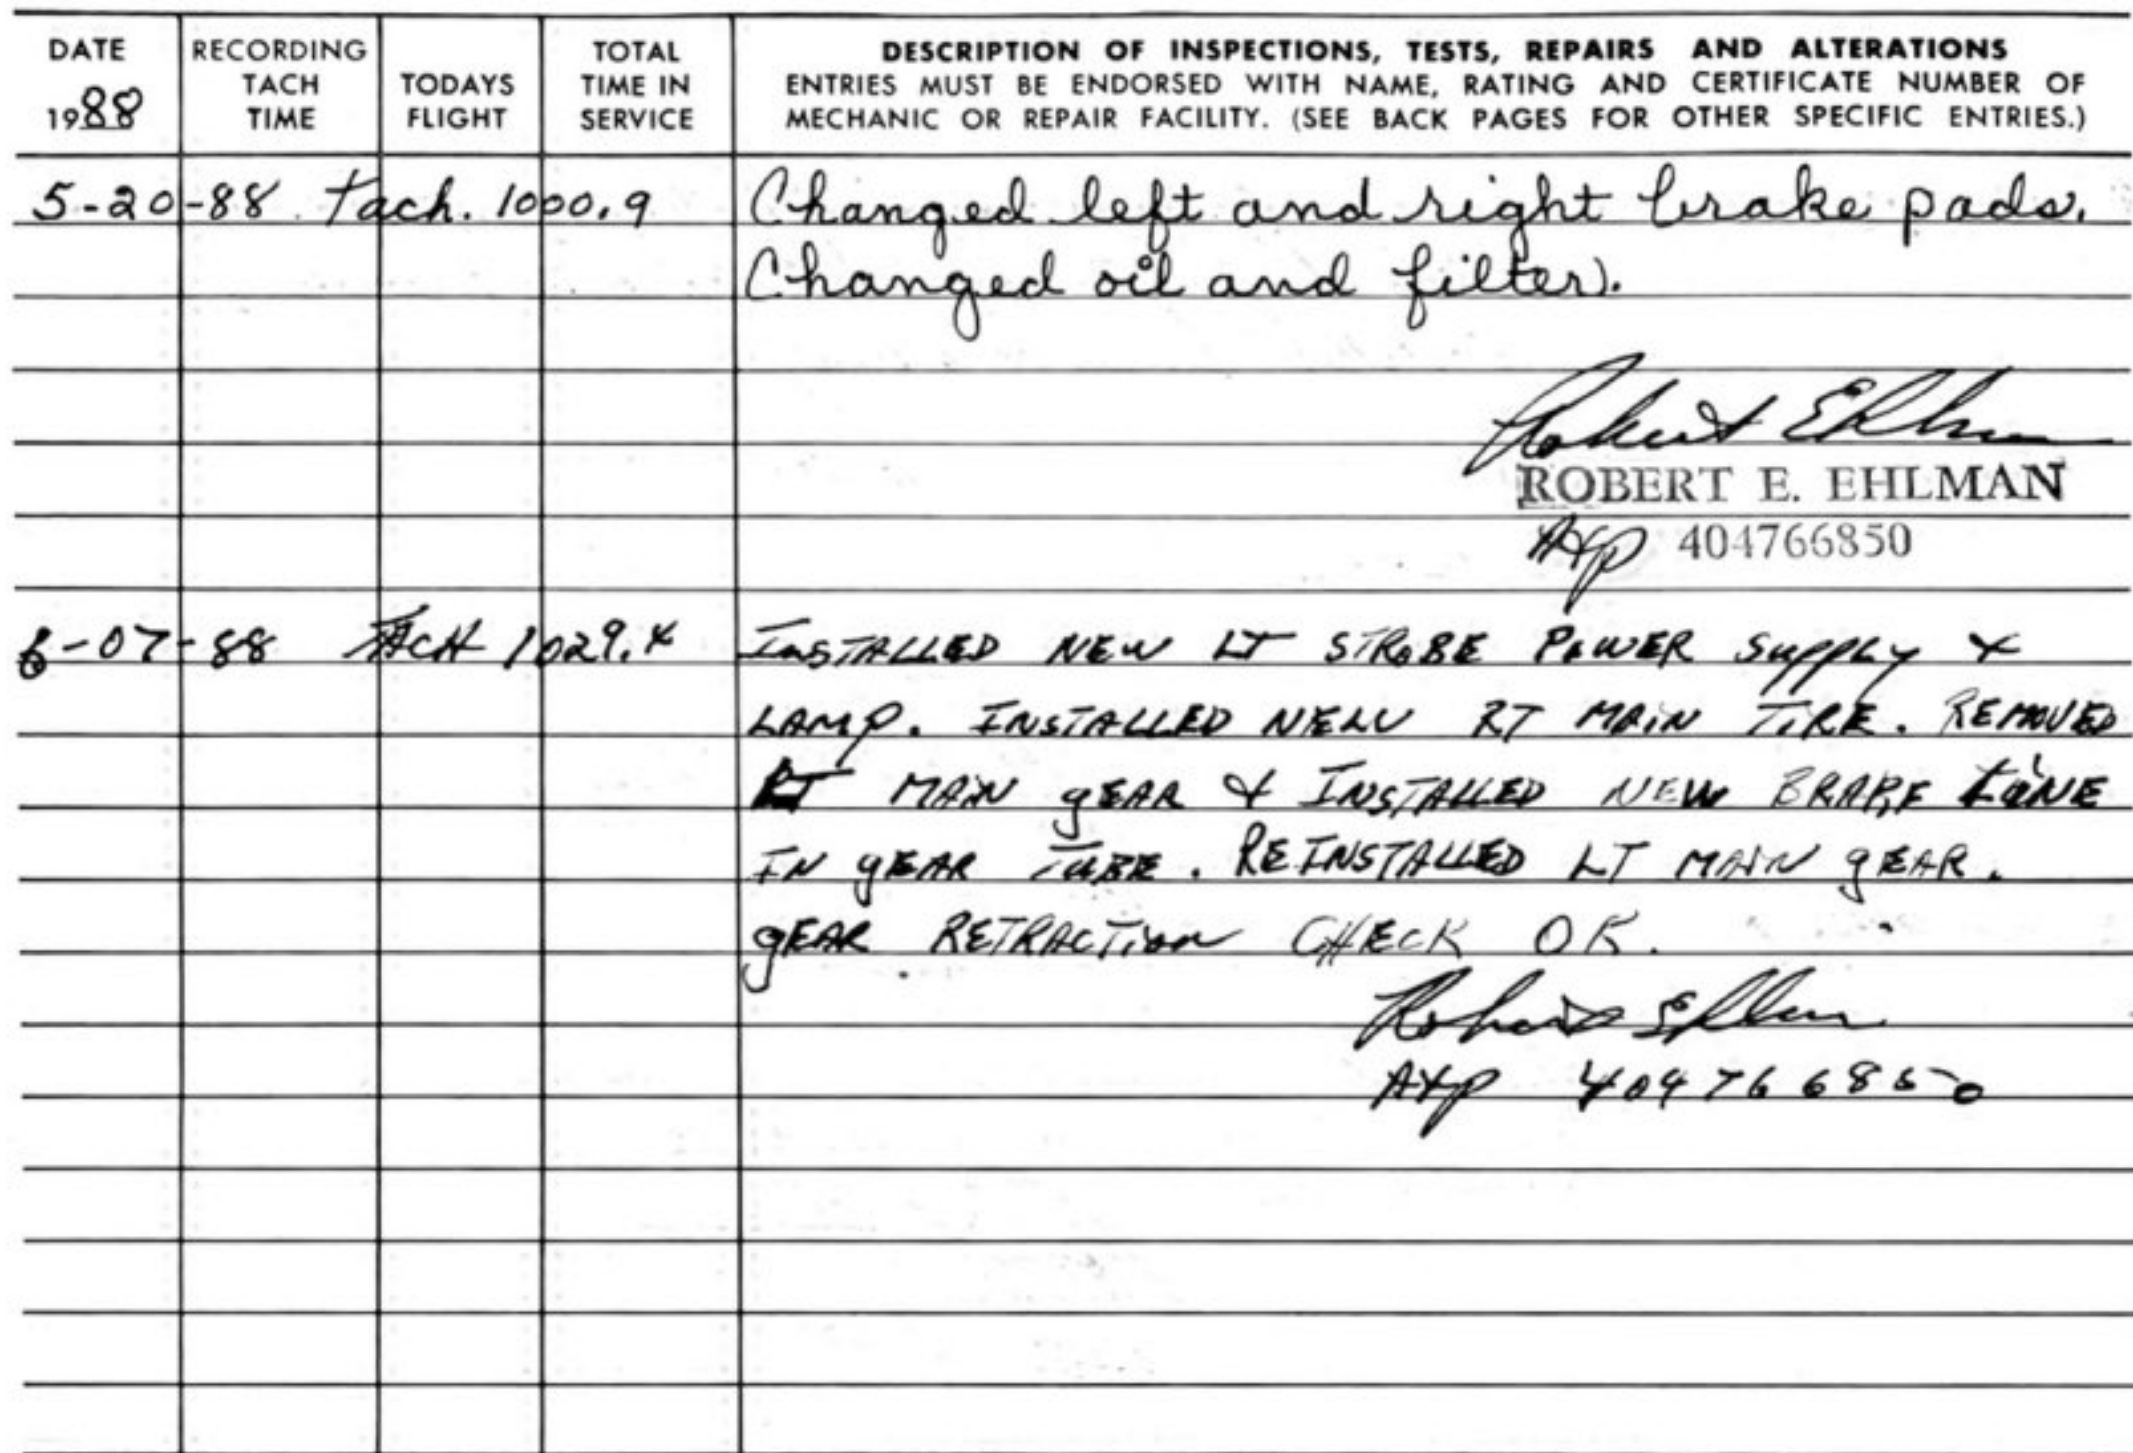 DATE RECORDING TODAYS TOTAL DESCRIPTION OF INSPECTIONS, TESTS, REPAIRS AND ALTERATIONS
TACH FLIGHT TIME IN ENTRIES MUST BE ENDORSED WITH NAME, RATING AND CERTIFICATE NUMBER OF
1988 TIME SERVICE MECHANIC OR REPAIR FACILITY. (SEE BACK PAGES FOR OTHER SPECIFIC ENTRIES.)
5-20-88 Tach. 1000.9 Changed left and right brake pads.
Changed oil and filter.
Robert Ehlman
ROBERT E. EHLMAN
A&P 404766850
6-07-88 TACH 1029.4 INSTALLED NEW LT STROBE POWER SUPPLY &
LAMP. INSTALLED NEW RT MAIN TIRE. REMOVED
LT MAIN GEAR & INSTALLED NEW BRAKE LINE
IN GEAR TUBE. REINSTALLED LT MAIN GEAR.
GEAR RETRACTION CHECK OK.
Robert Ehlman
A&P 404766850